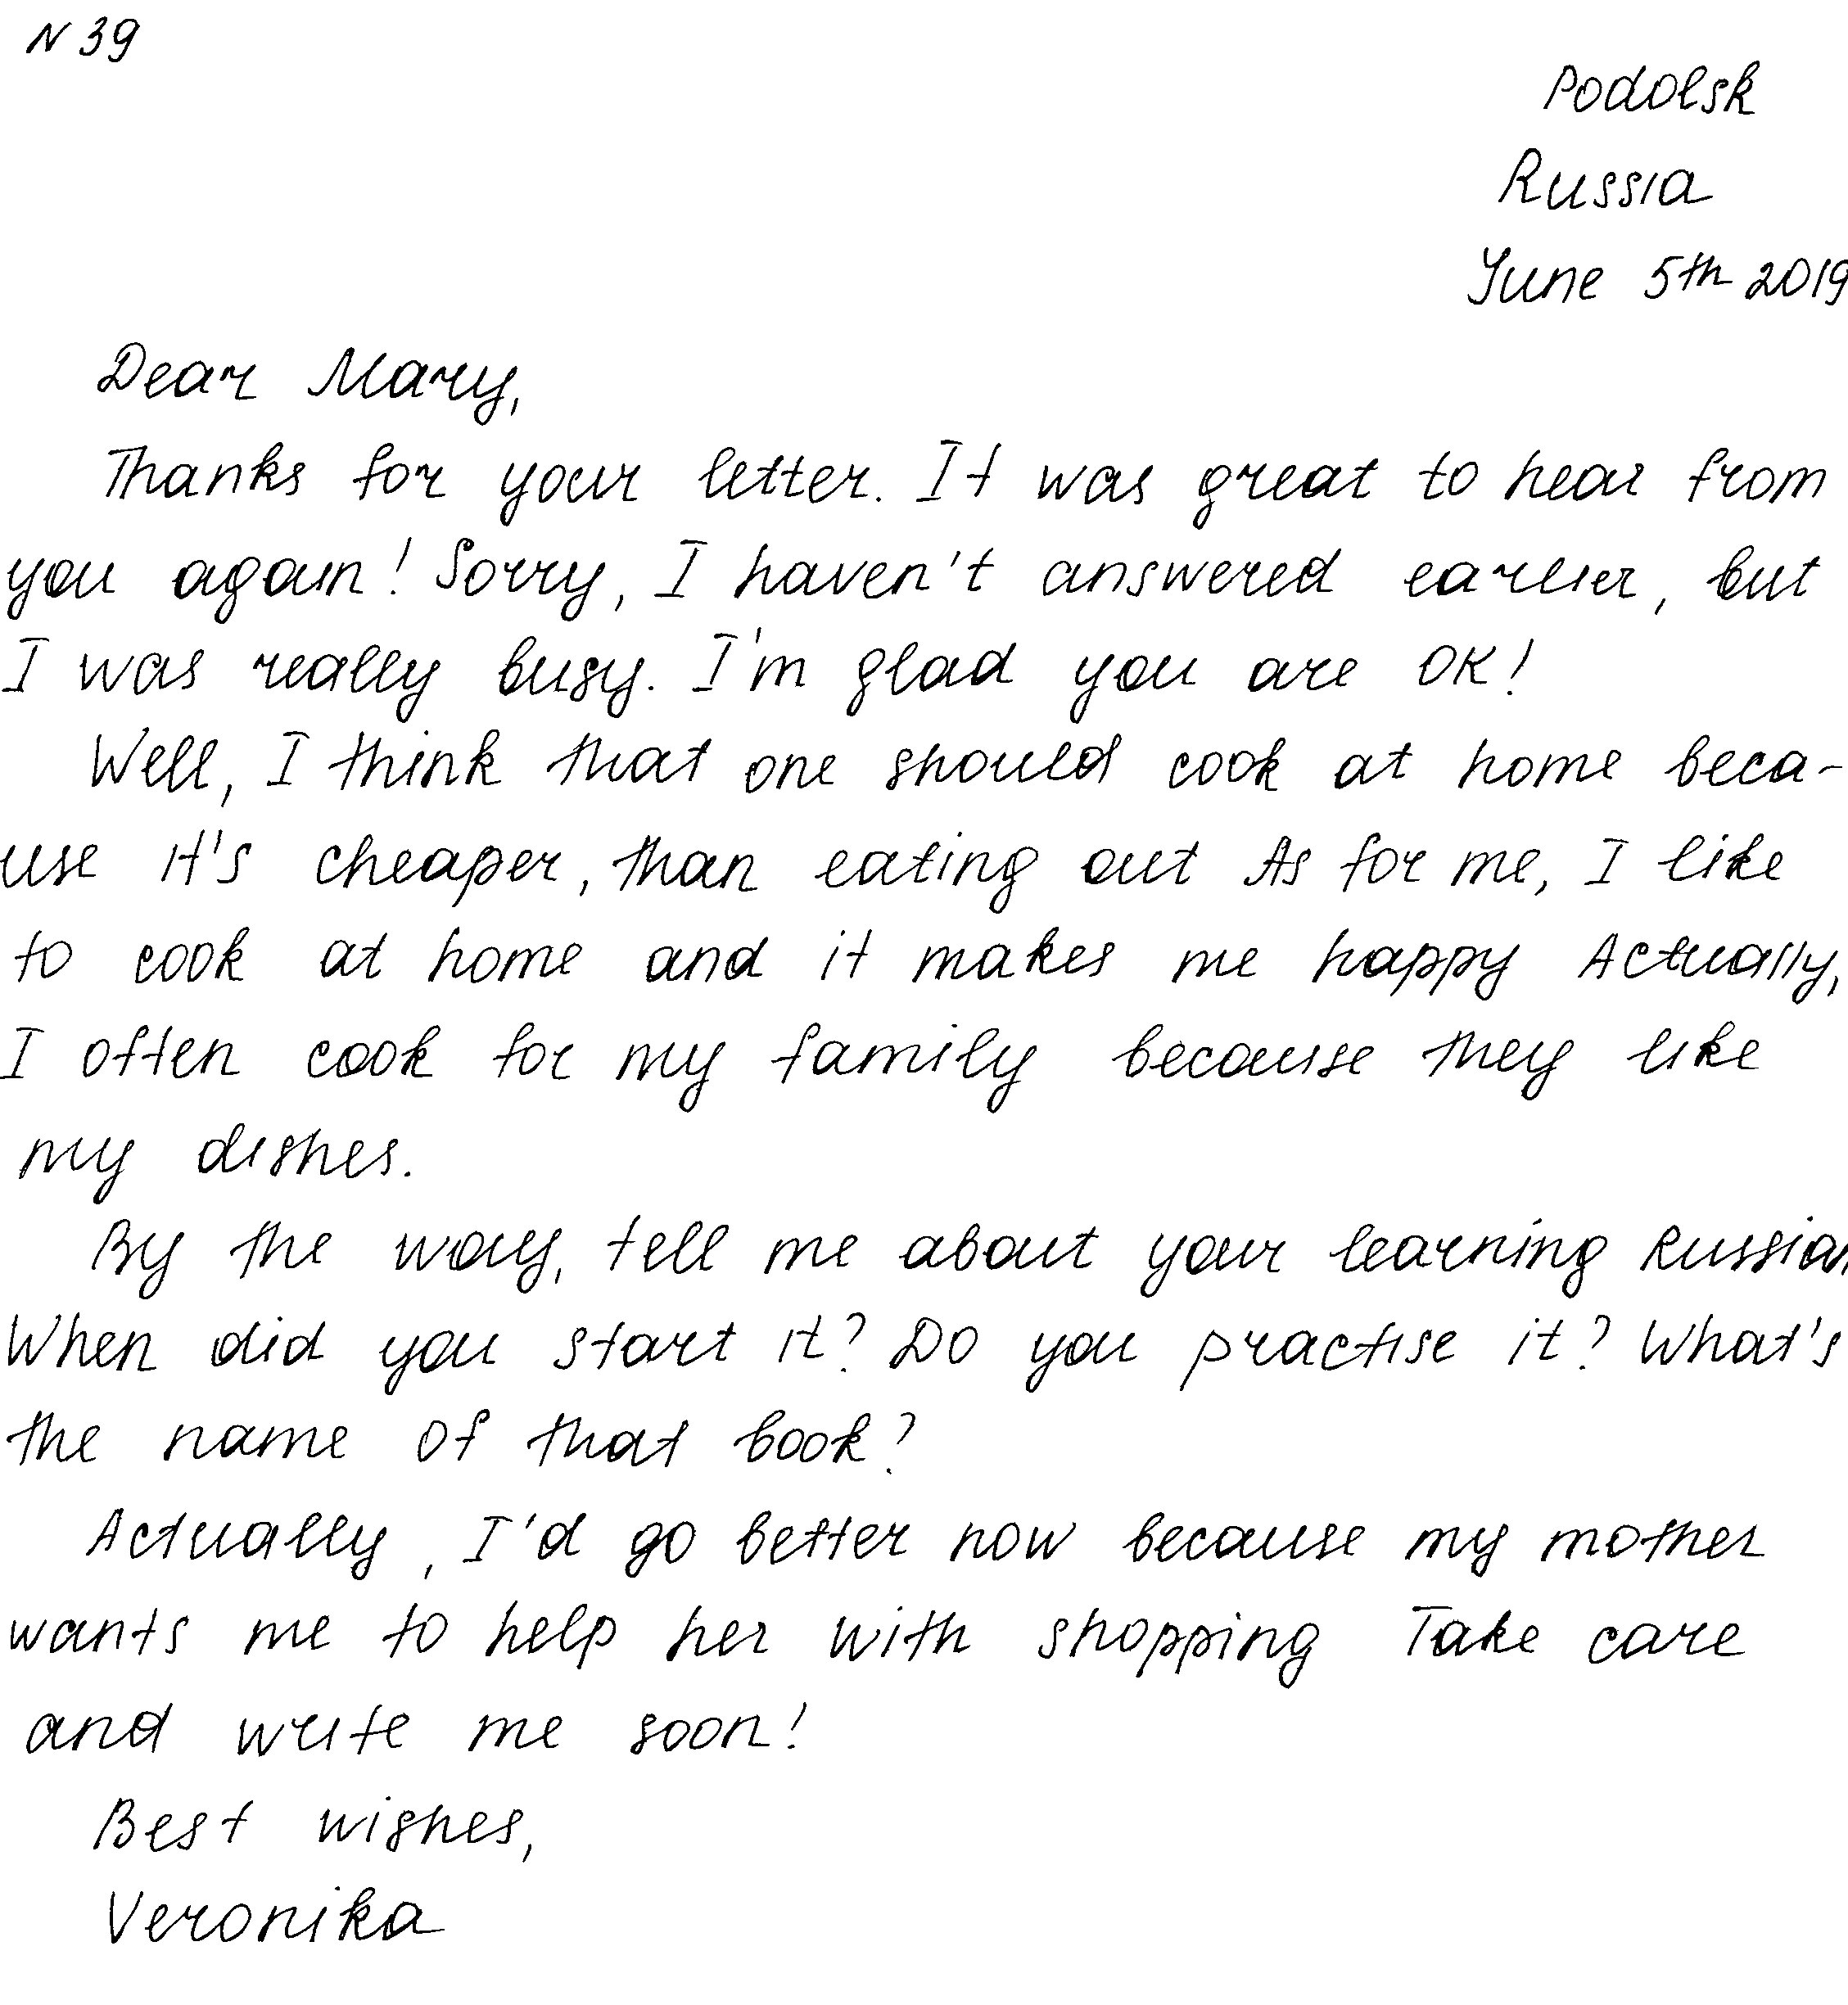 N 39
Podolsk
Russia
June 5th 2019
Dear Mary,
Thanks for your letter. It was great to hear from
you again! Sorry, I haven't answered earlier, but
I was really busy. I'm glad you are OK!
Well, I think that one should cook at home beca-
use it's cheaper, than eating out As for me, I like
to cook at home and it makes me happy Actually,
I often cook for my family because they like
my dishes.
By the way, tell me about your learning Russian
When did you start it? Do you practise it? What's
the name of that book?
Actually, I'd go better now because my mother
wants me to help her with shopping Take care
and write me soon!
Best wishes,
Veronika